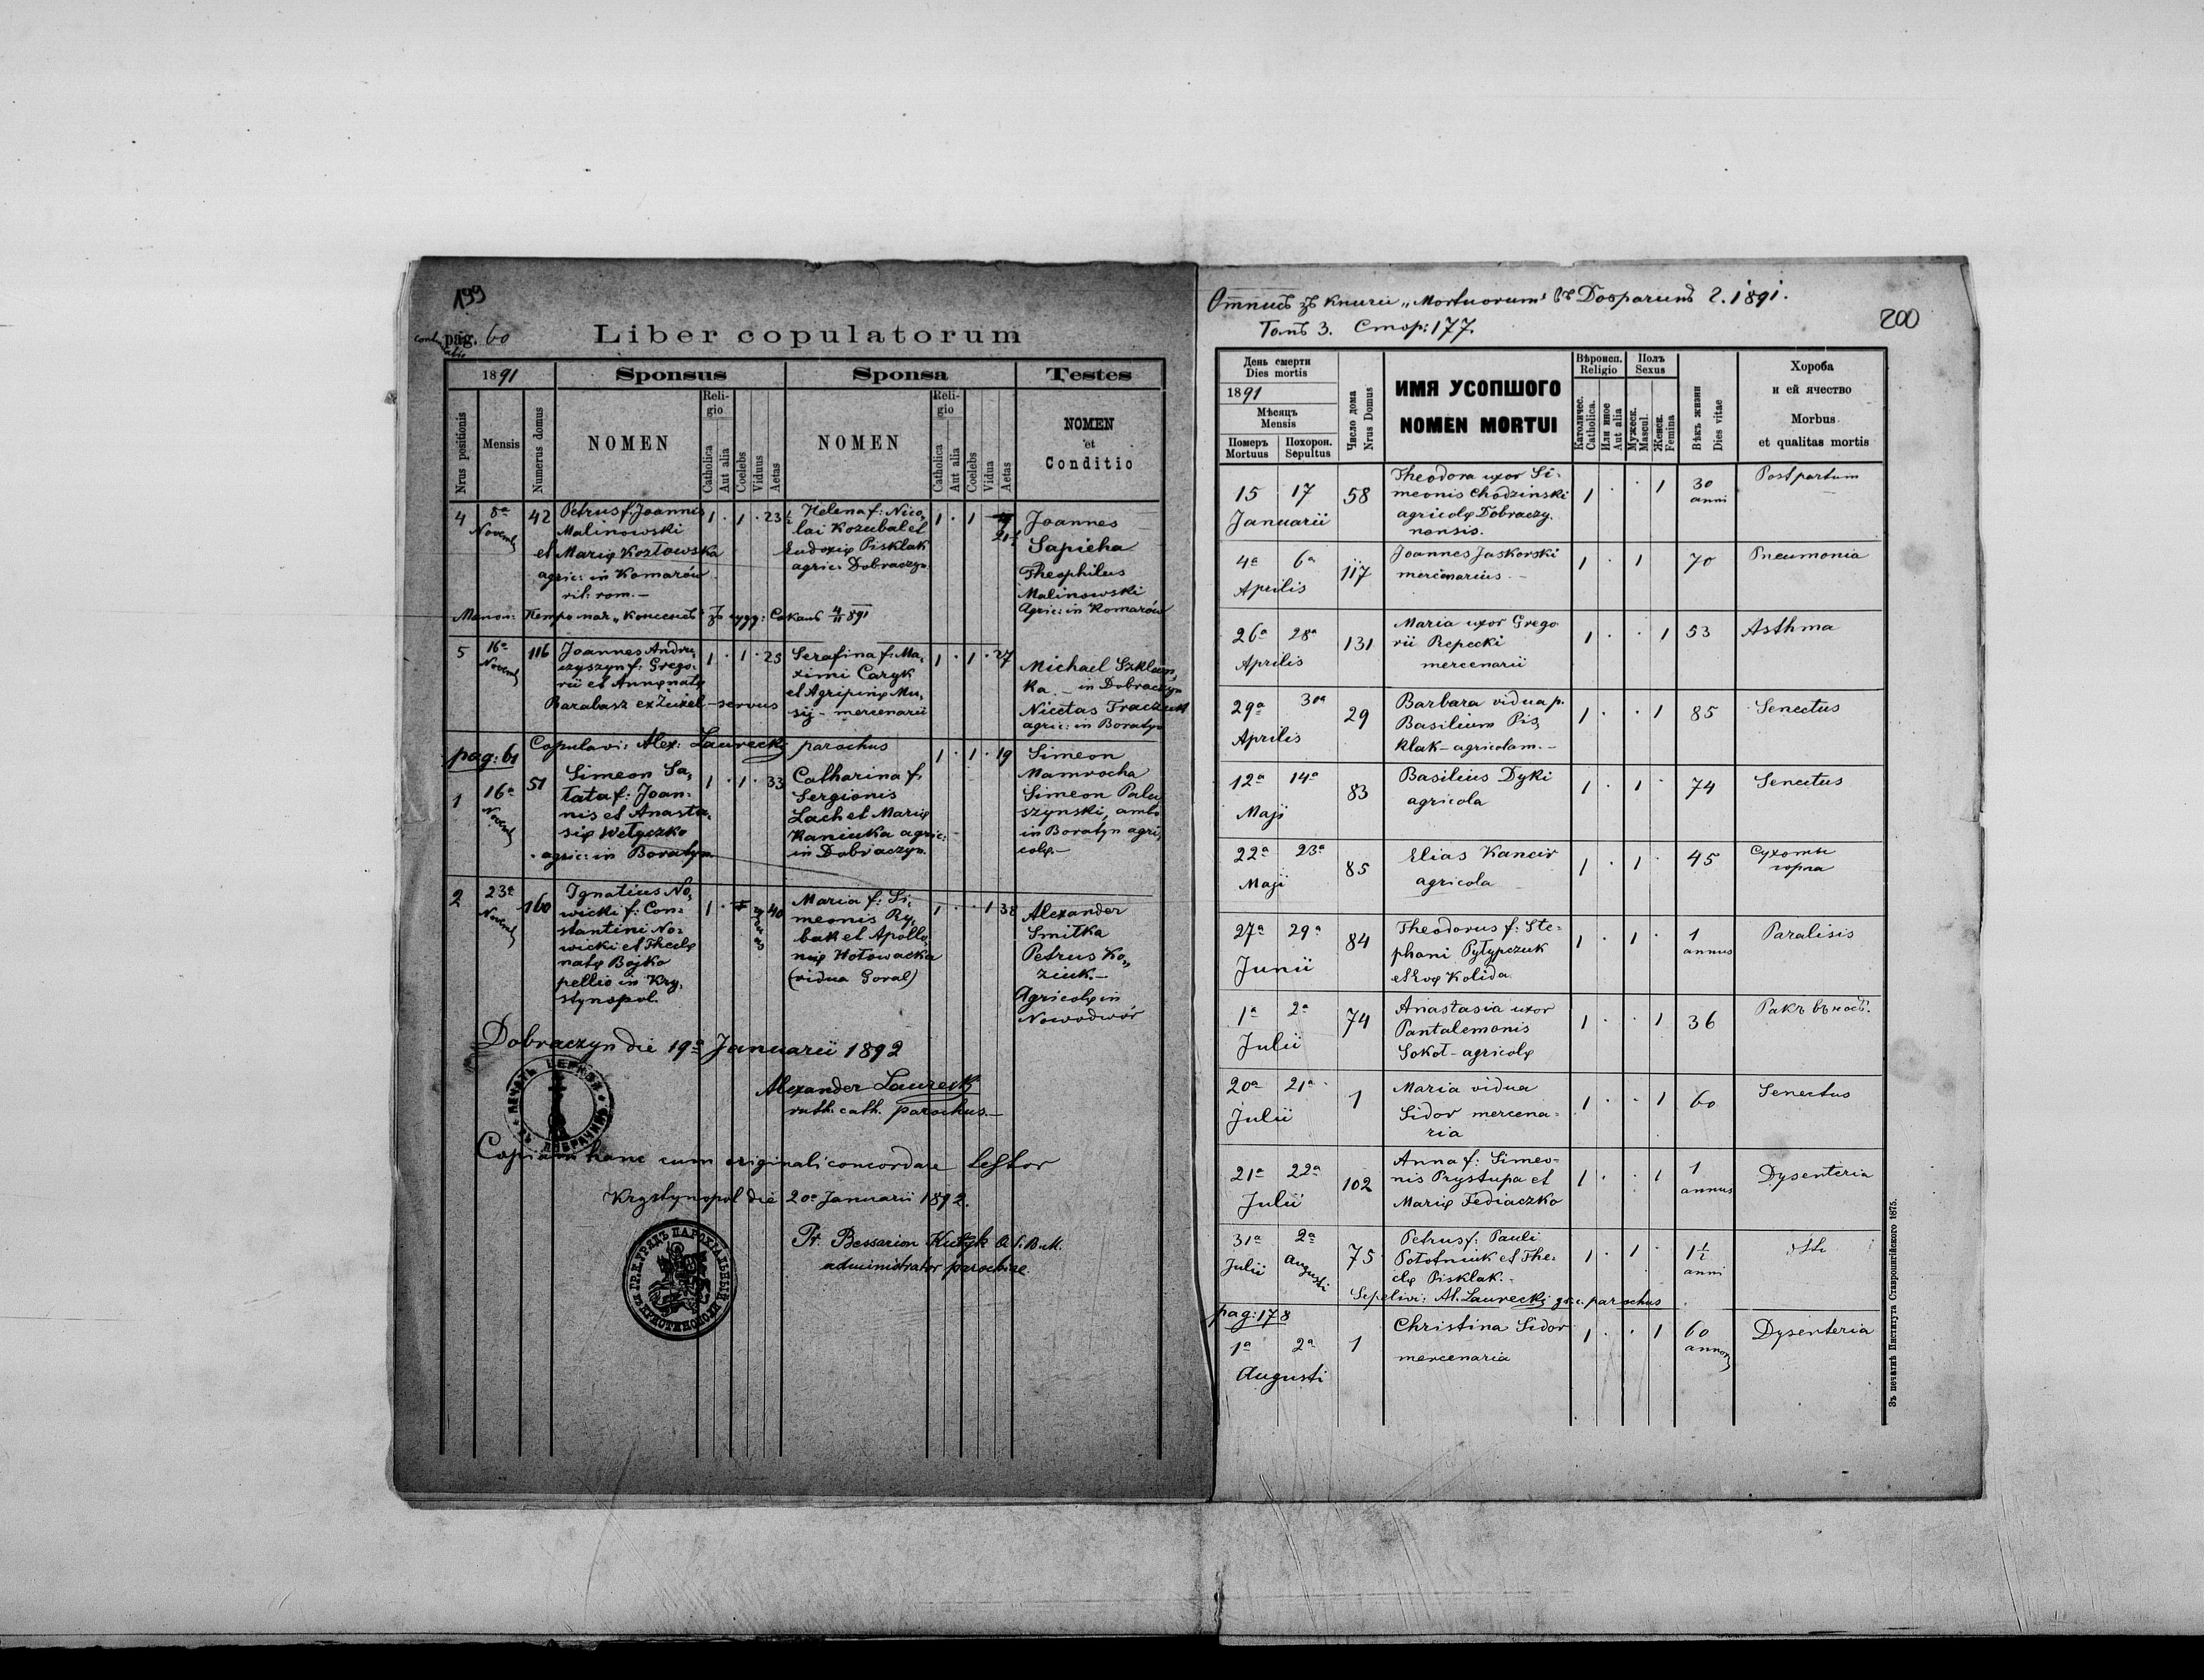 199
pag. 60
Liber copulatorum
1891
Sponsus
Sponsa
Testes
Nrus positionis
Mensis
Numerus domus
NOMEN
Religio
Catholica
Aut alia
Coelebs
Viduus
Aetas
NOMEN
Religio
Catholica
Aut alia
Coelebs
Vidua
Aetas
NOMEN
et
Conditio
4
8ª
Novemb
42
Petrus f. Joannis
Malinowski
et Marię Kozłowska
agric: in Komarów
rit: rom.—
1 · 1 · 23½
Helena f: Nico,
lai Kozubal et
Eudoxię Pisklak
agric: Dobraczyn
1 · 1
Joannes
Sapieha
Theophilus
Malinowski
Agric: in Komarów
5
16ª
Novemb
116
Joannes Andru,
szyszyn f: Grego-
rii et Annę natę
Barabasz ex Żużel - servus
1 · 1 · 25
Serafina f: Ma,
ximi Caryk
et Agripinę Mu,
sij - mercenarii
1 · 1 · 27
Michael Szklan,
ka. - in Dobraczyn
Nicetas Traczuk
agric: in Boratyn
Copulavi: Alex: Laurecki parochus
pag: 61
1
16ª
Novemb
51
Simeon Sa,
łata f: Joan-
nis et Anasta-
się Wełyczko
agric: in Boratyn
1 · 1 · 33
Catharina f.
Sergionis
Lach et Marię
Kaniuka agric:
in Dobraczyn.
1 · 1 · 19
Simeon
Mamrocha
Simeon Palu
szynski, ambo
in Boratyn agri,
colę.—
2
23ª
Novemb
160
Ignatius No,
wicki f: Con-
stantini No-
wicki et Theclę
natę Bojko
pellio in Kry,
stynopol.
1 · viduus 40
Maria f: Si,
meonis Ry,
bak et Apollo,
nię Hołowacka
(vidua Goral)
1 · · 1 38
Alexander
Smitka
Petrus Ko,,
ziuk.—
Agricolę in
Nowodwór
Dobraczyn die 19ª Januarii 1892
Alexander Laurecki
ruth. cath. parochus.—
Copiam hanc cum originali concordare testor
Krystynopol die 20ª Januarii 1892.
Pr. Bessarion Kułyk O.S.B.M.
administrator parochiae.
200
Отписъ зъ книги „Mortuorum"
Томъ 3. Стор: 177.
День смерти
Dies mortis
1891
Мѣсяцъ
Mensis
Померъ
Mortuus
Похорон.
Sepultus
Число дома
Nrus Domus
ИМЯ УСОПШОГО
NOMEN MORTUI
Вѣроисп.
Religio
Католичес.
Catholica.
Или иное
Aut alia
Полъ
Sexus
Мужеск.
Mascul.
Женск.
Femina
Вѣкъ жизни
Dies vitae
Хороба
и ей ячество
Morbus
et qualitas mortis
15 17
Januarii
58
Theodora uxor Si-
meonis Chodzinski
agricolę Dobraczy.
nensis.
1 · · 1
30
anni
Postpartum
4ª 6ª
Aprilis
117
Joannes Jaskorski
mercenarius.—
1 · 1
70
Pneumonia
26ª 28ª
Aprilis
131
Maria uxor Grego
rii Repecki
mercenarii
1 · · 1
53
Asthma
29ª 30ª
Aprilis
29
Barbara vidua p.
Basilium Pis,
klak - agricolam.—
1 · · 1
85
Senectus
12ª 14ª
Maji
83
Basilius Dyki
agricola
1 · 1 ·
74
Senectus
22ª 23ª
Maji
85
Elias Kancir
agricola
1 · 1 ·
45
Сухоты
горла
27ª 29ª
Junii
84
Theodorus f: Ste-
phani Pyłypczuk
et Evę Kolida
1 · 1 ·
1
annus
Paralisis
1ª 2ª
Julii
74
Anastasia uxor
Pantalemonis
Sokoł - agricolę
1 · · 1
36
Ракъ въ носѣ.
20ª 21ª
Julii
1
Maria vidua
Sidor mercena-
ria
1 · · 1
60
Senectus
21ª 22ª
Julii
102
Anna f: Simeo-
nis Prystupa et
Marię Fediaczko
1 · · 1
1
annus
Dysenteria
31ª 2ª
Julii Augusti
75
Petrus f: Pauli
Połotniuk et The-
clę Pisklak.-
1 · 1 ·
1½
anni
Sepelivi: Al. Laurecki gr. c. parochus
pag: 178
1ª 2ª
Augusti
1
Christina Sidor
mercenaria
1 · · 1
60
annor
Dysenteria
Зъ печатнѣ Института Ставропигійского 1875.